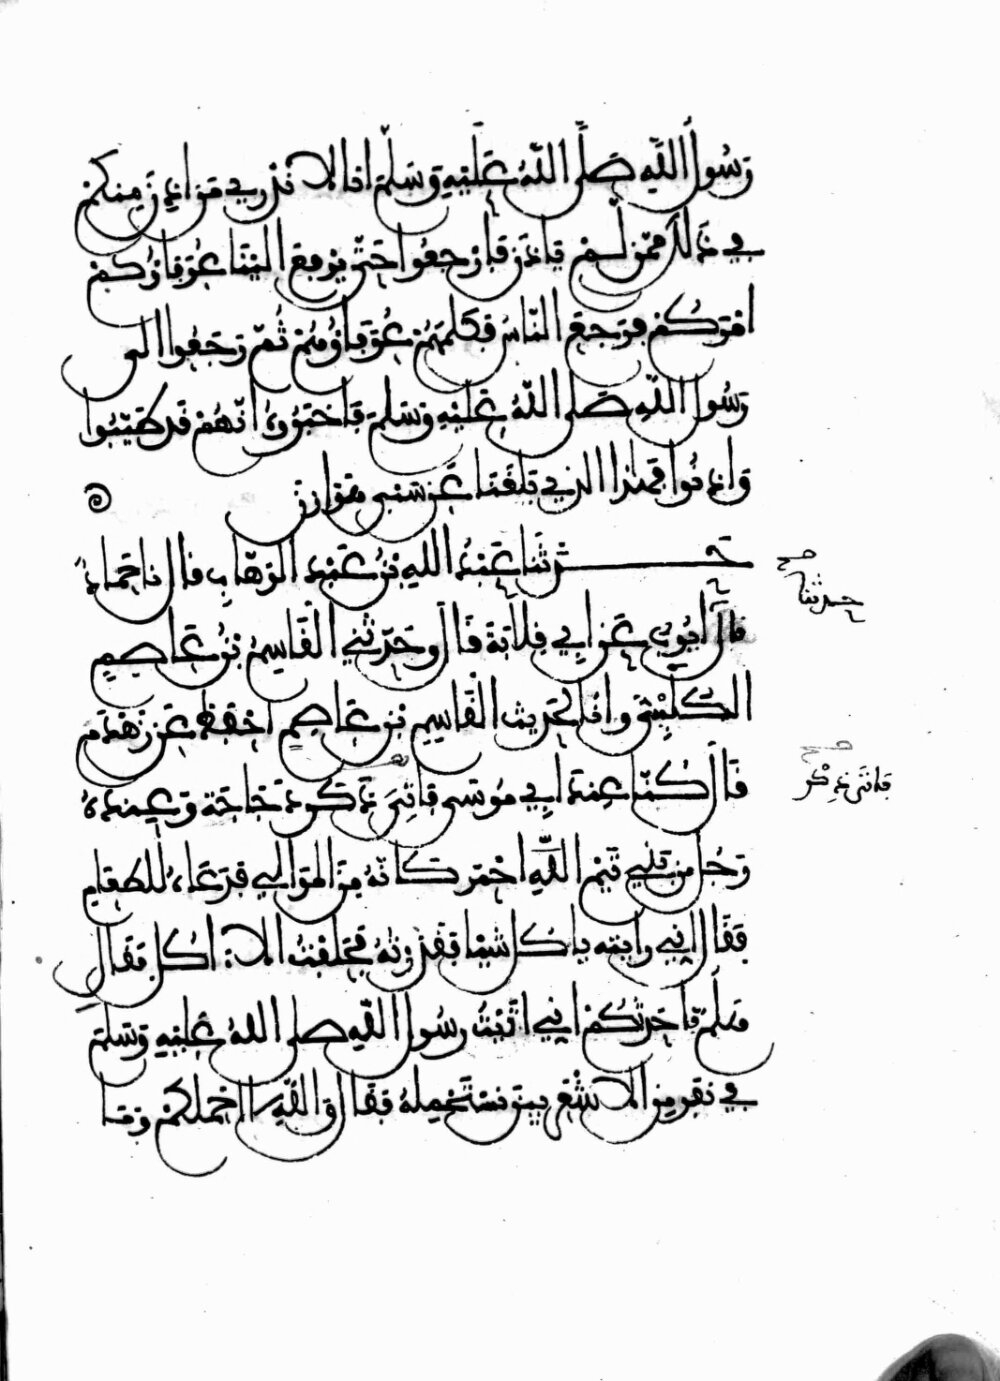 رَسُولُ اللَّهِ صَلَّى اللَّهُ عَلَيْهِ وَسَلَّمَ انا لا نَدْرِي مَنْ اذِنَ مِنكُمْ
فِي ذَلِكَ مِمَّنْ لَمْ يَاذَنْ فَارْجِعُوا حَتَّى يَرْفَعَ الَيْنَا عُرَفَاؤُكُمْ
امْرَكُمْ فَرَجَعَ النَّاسُ فَكَلَّمَهُمْ عُرَفَاؤُهُمْ ثُمَّ رَجَعُوا الى
رَسُولِ اللَّهِ صَلَّى اللَّهُ عَلَيْهِ وَسَلَّمَ فَاخْبَرُوهُ انَّهُمْ قَدْ طَيَّبُوا
وَاذِنُوا فَهَذَا الذِي بَلَغَنَا عَنْ سَبْيِ هَوَازِنَ
حَدَّثَنَا عَبْدُ اللَّهِ بْنُ عَبْدِ الْوَهَّابِ قَالَ نا حَمَّادٌ
حدثنا
قَالَ ايُّوبُ عَنْ ابِي قِلَابَةَ قَالَ وَحَدَّثَنِي الْقَاسِمُ بْنُ عَاصِمٍ
الْكُلَيْبِيُّ وانا لِحَدِيثِ الْقَاسِمِ بْنِ عَاصِمٍ احْفَظُ عَنْ زَهْدَمٍ
قَالَ كُنَّا عِنْدَ ابِي مُوسَى فَاتِيَ ذَكَرَ دَجَاجَةً وَعِنْدَهُ
فَاتَى ذِكْر
رَجُلٌ مِنْ بَنِي تَيْمِ اللَّهِ احْمَرُ كَانَّهُ مِنَ الْمَوَالِي فَدَعَاهُ لِلطَّعَامِ
فَقَالَ انِّي رايته ياكل شَيْئا فَقَذِرْتُهُ فَحَلَفْتُ الا اكُلَ فَقَالَ
هَلُمَّ فَاحَدِّثُكُمْ انِّي اتَيْتُ رَسُولَ اللَّهِ صلى اللهُ عَلَيْهِ وَسَلَّمَ
فِي نَفَرٍ مِنَ الاشْعَرِيينَ نَسْتَحْمِلُهُ فَقَالَ وَاللَّهِ لا احْمِلُكُمْ وَمَا